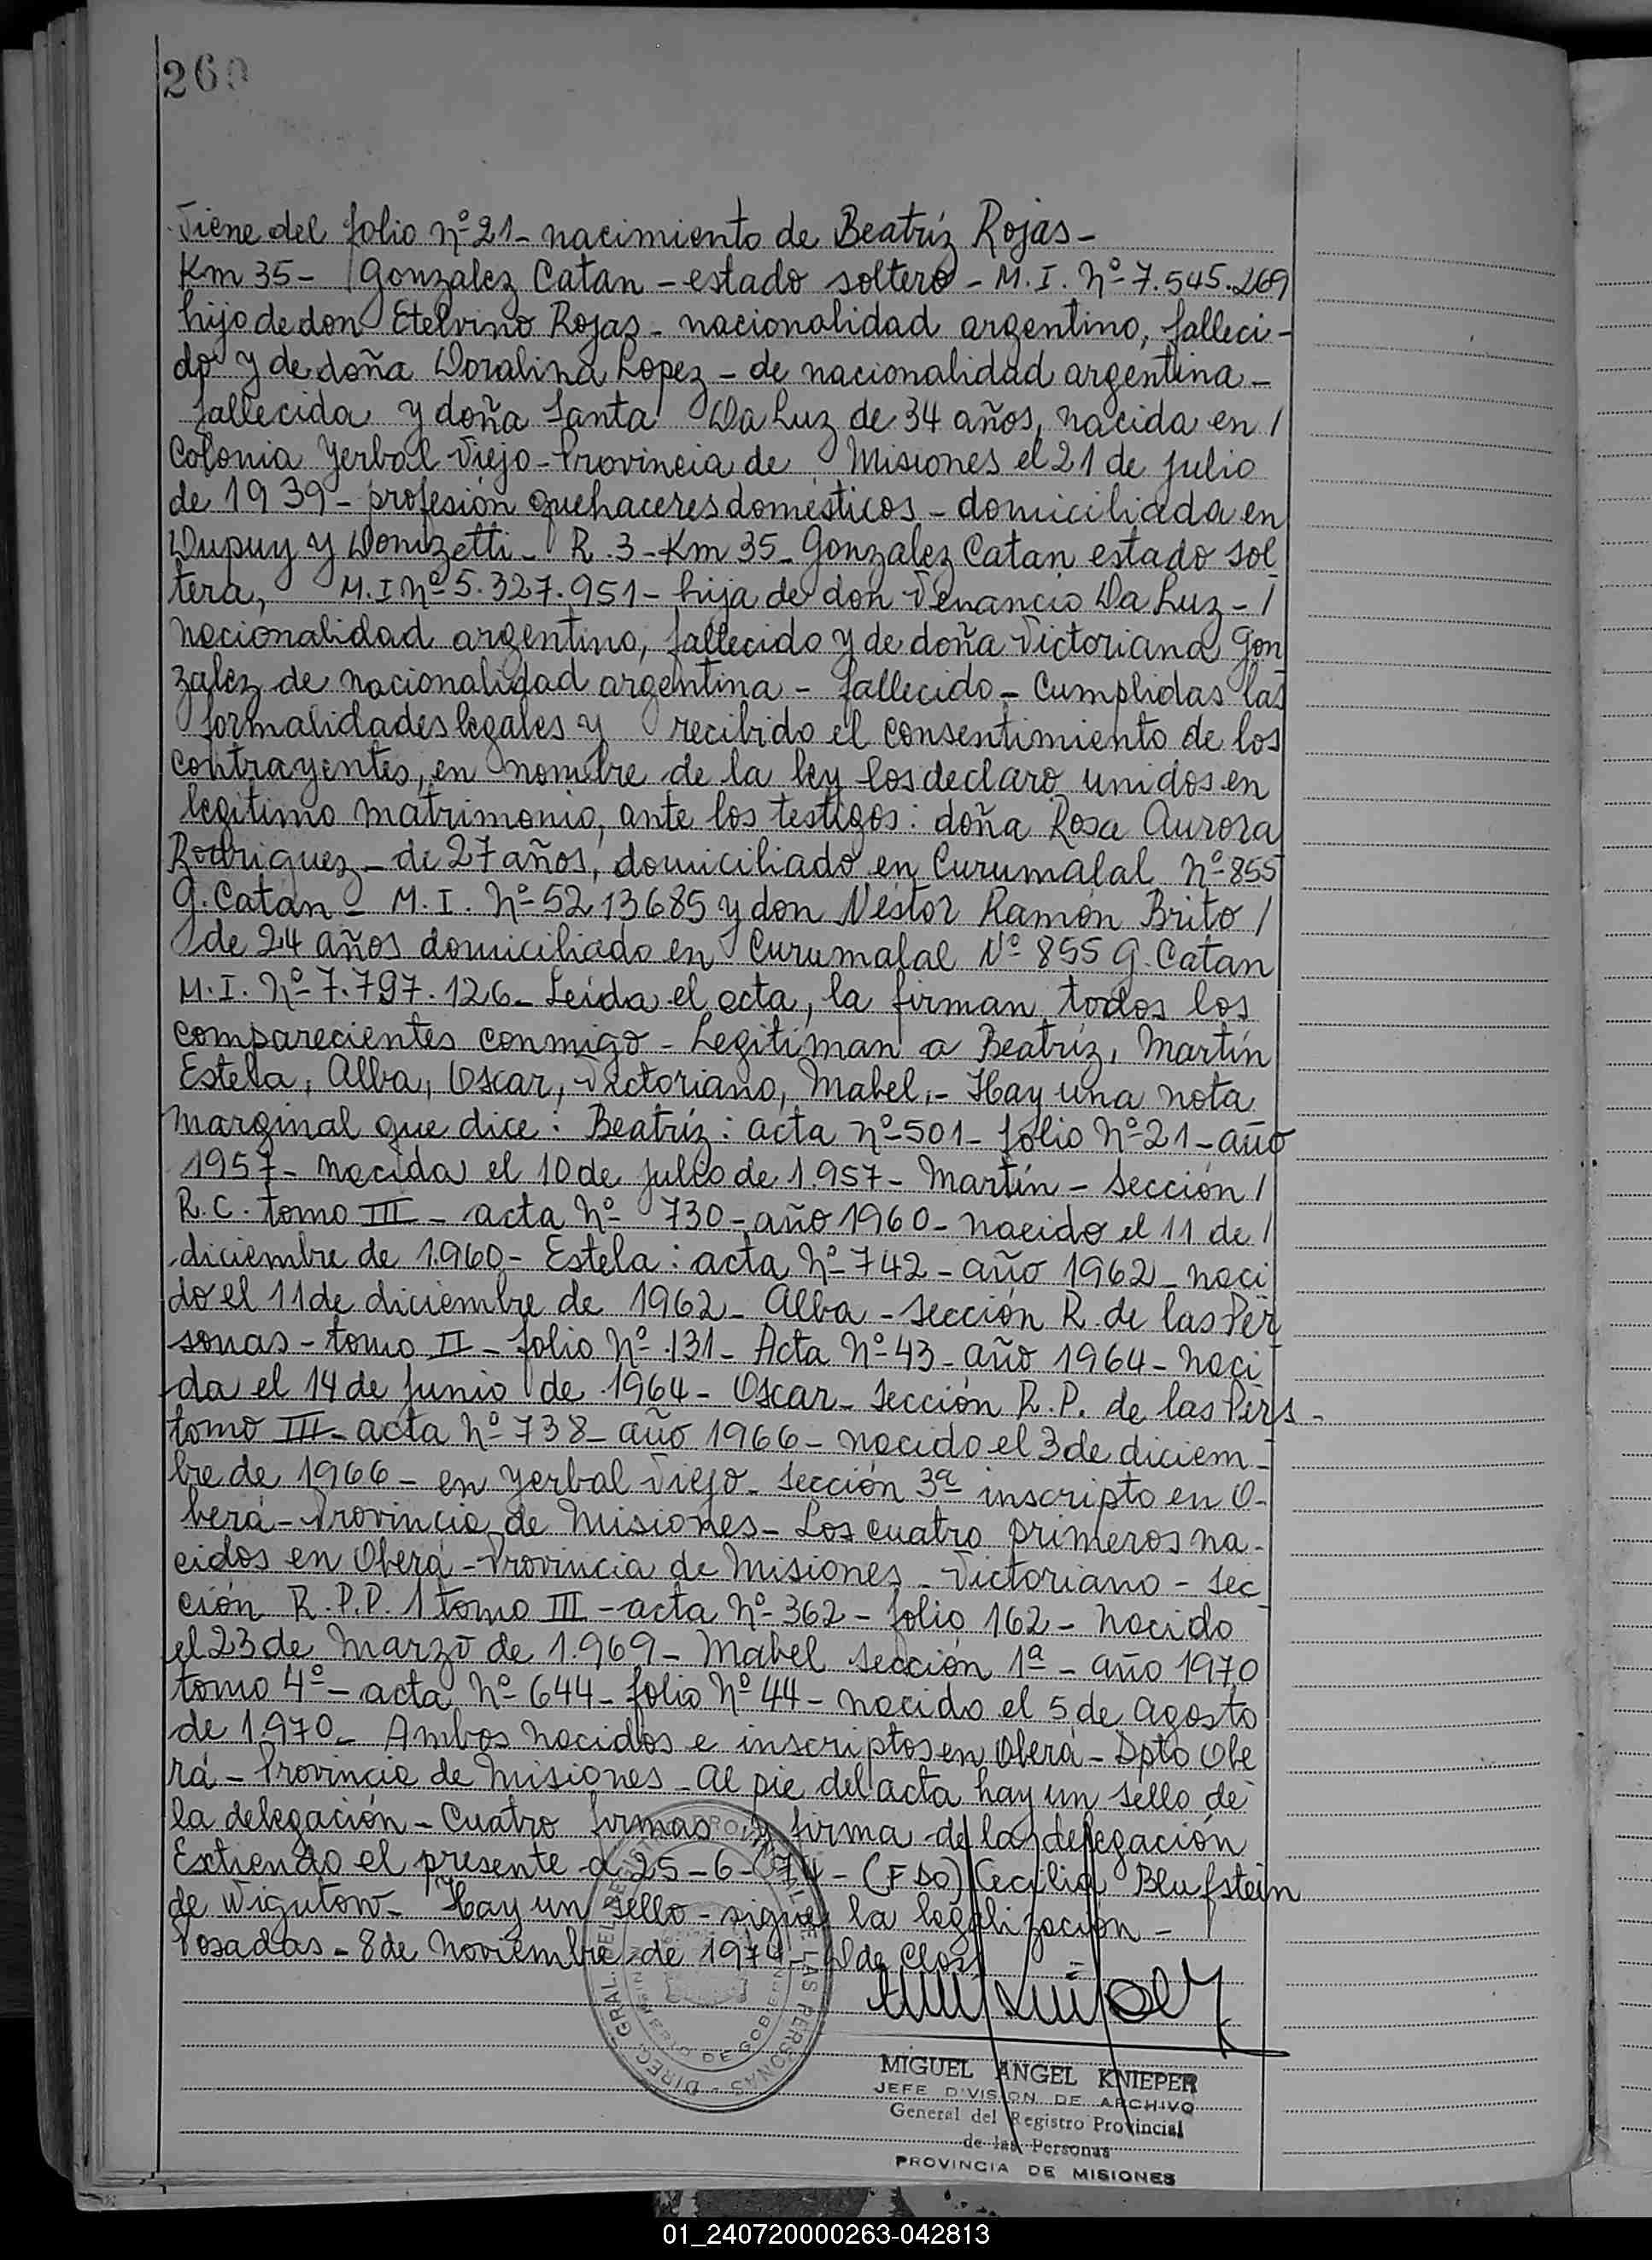 260
Viene del folio nº 21 - nacimiento de Beatríz Rojas -
Km 35 - Gonzalez Catan - estado soltero - M. I. Nº 7.545.269
hijo de don Etelvino Rojas - nacionalidad argentino, falleci-
do y de doña Doralina Lopez - de nacionalidad argentina -
fallecida y doña Santa Da Luz de 34 años, nacida en /
Colonia Yerbal Viejo - Provincia de Misiones el 21 de julio
de 1939 - profesión quehaceres domésticos - domiciliada en
Dupuy y Donizetti - R. 3 - Km 35 - Gonzalez Catan estado sol-
tera, M. I Nº 5.327.951 - hija de don Venancio Da Luz - /
nacionalidad argentino, fallecido y de doña Victoriana Gon
zalez de nacionalidad argentina - fallecido - Cumplidas las
formalidades legales y recibido el consentimiento de los
contrayentes, en nombre de la ley los declaro unidos en
legitimo matrimonio, ante los testigos: doña Rosa Aurora
Rodriguez - de 27 años, domiciliado en Curumalal Nº 855
G. Catán - M. I. Nº 5213685 y don Néstor Ramón Brito /
de 24 años domiciliado en Curumalal Nº 855 G. Catan
M. I. Nº 7.797.126 - Leída el acta, la firman todos los
comparecientes conmigo - Legitiman a Beatríz, Martín
Estela, Alba, Oscar, Victoriano, Mabel, - Hay una nota
marginal que dice: Beatríz: acta nº 501 - folio nº 21 - año
1957 - nacida el 10 de julio de 1.957 - Martín - Sección /
R. C. tomo III - acta Nº 730 - año 1960 - nacido el 11 de /
diciembre de 1.960 - Estela: acta Nº 742 - año 1962 - naci
do el 11 de diciembre de 1962 - Alba - Sección R. de las Per
sonas - tomo II - folio Nº 131 - Acta Nº 43 - año 1964 - naci
da el 14 de junio de 1964 - Oscar - Sección R. P. de las Pers -
tomo III - acta Nº 738 - año 1966 - nacido el 3 de diciem -
bre de 1966 - en Yerbal Viejo - Sección 3ª inscripto en O-
berá - Provincia de Misiones - Los cuatro primeros na-
cidos en Oberá - Provincia de Misiones - Victoriano - Sec
ción R. P. P. 1 tomo III - acta Nº 362 - folio 162 - nacido
el 23 de Marzo de 1.969 - Mabel Sección 1ª - año 1970
tomo 4º - acta Nº 644 - folio Nº 44 - nacido el 5 de Agosto
de 1970 - Ambos nacidos e inscriptos en Oberá - Dpto Obe
rá - Provincia de Misiones - Al pie del acta hay un sello de
la delegación - Cuatro firmas y firma de la delegación
Extiendo el presente a 25-6-74 - (FDO) Cecilia Blufstein
de Wigutow - Hay un sello - sigue la legalización -
Posadas - 8 de Noviembre de 1974 - D de Closs
MIGUEL ANGEL KNIEPER
JEFE DIVISION DE ARCHIVO
General del Registro Provincial
de las Personas
PROVINCIA DE MISIONES
01_240720000263-042813